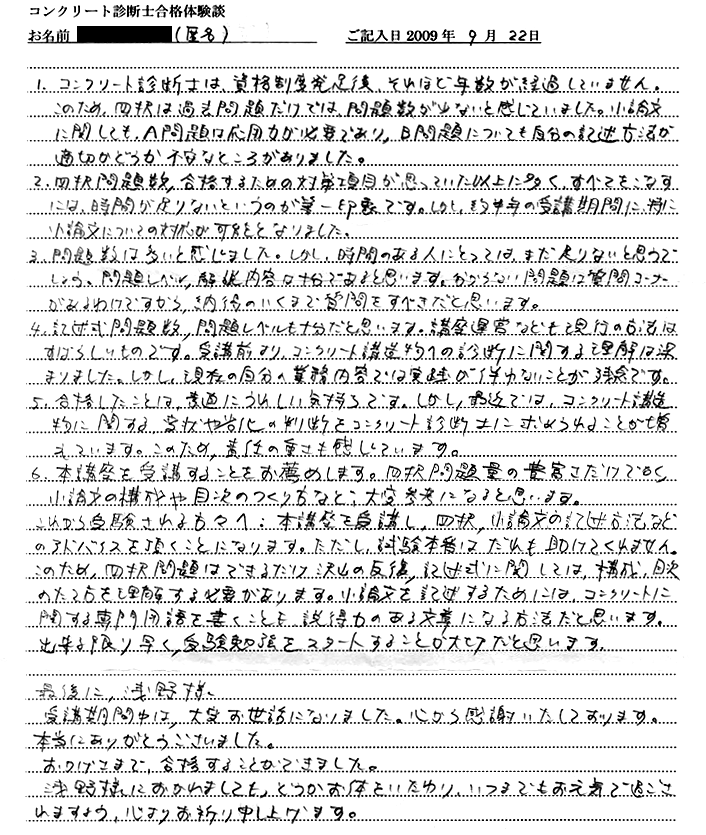 コンクリート診断士合格体験談
お名前 (匿名) ご記入日 2009年 9月 22日
1. コンクリート診断士は、資格制度発足後、それほど年数が経過していません。
このため、四択は過去問題だけでは、問題数が少ないと感じていました。小論文
に関しても、A問題は応用力が必要であり、B問題についても自分の記述方法が
適切かどうか不安なところがありました。
2. 四択問題数、合格するための対策項目が思っていた以上に多く、すべてをこなす
には、時間が足りないというのが第一印象です。しかし、約半年の受講期間に、特に
小論文についての対応が可能となりました。
3. 問題数は多いと感じました。しかし、時間のある人にとっては、まだ足りないと思うで
しょう。問題レベル、解説内容は十分であると思います。わからない問題は質問コーナー
があるわけですから、納得のいくまで質問をすべきだと思います。
4. 記述式問題数、問題レベルも十分だと思います。講座運営なども現行の方法は
すばらしいものです。受講前より、コンクリート構造物への診断に関する理解は深
まりました。しかし、現在の自分の業務内容では実践が伴わないことが残念です。
5. 合格したことは、普通にうれしい気持ちです。しかし、最近では、コンクリート構造
物に関する、変状や劣化の判断をコンクリート診断士に求められることが増
えています。このため、責任の重さも感じています。
6. 本講座を受講することをお薦めします。四択問題量の豊富さだけでなく、
小論文の構成や目次のつくり方など、大変参考になると思います。
これから受験される方々へ:本講座を受講し、四択、小論文の記述方法など
のアドバイスを頂くことになります。ただし、試験本番はだれも助けてくれません。
このため、四択問題はできるだけ沢山の反復、記述式に関しては、構成、目次
のたて方を理解する必要があります。小論文を記述するためには、コンクリートに
関する専門用語を書くことも、説得力のある文章になる方法だと思います。
出来る限り早く、受験勉強をスタートすることが大切だと思います。
最後に、浅野様、
受講期間中は、大変お世話になりました。心から感謝いたしております。
本当にありがとうございました。
おかげさまで、合格することができました。
浅野様におかれましても、どうかお体をいたわり、いつまでもお元気で過ごさ
れますよう、心よりお祈り申し上げます。